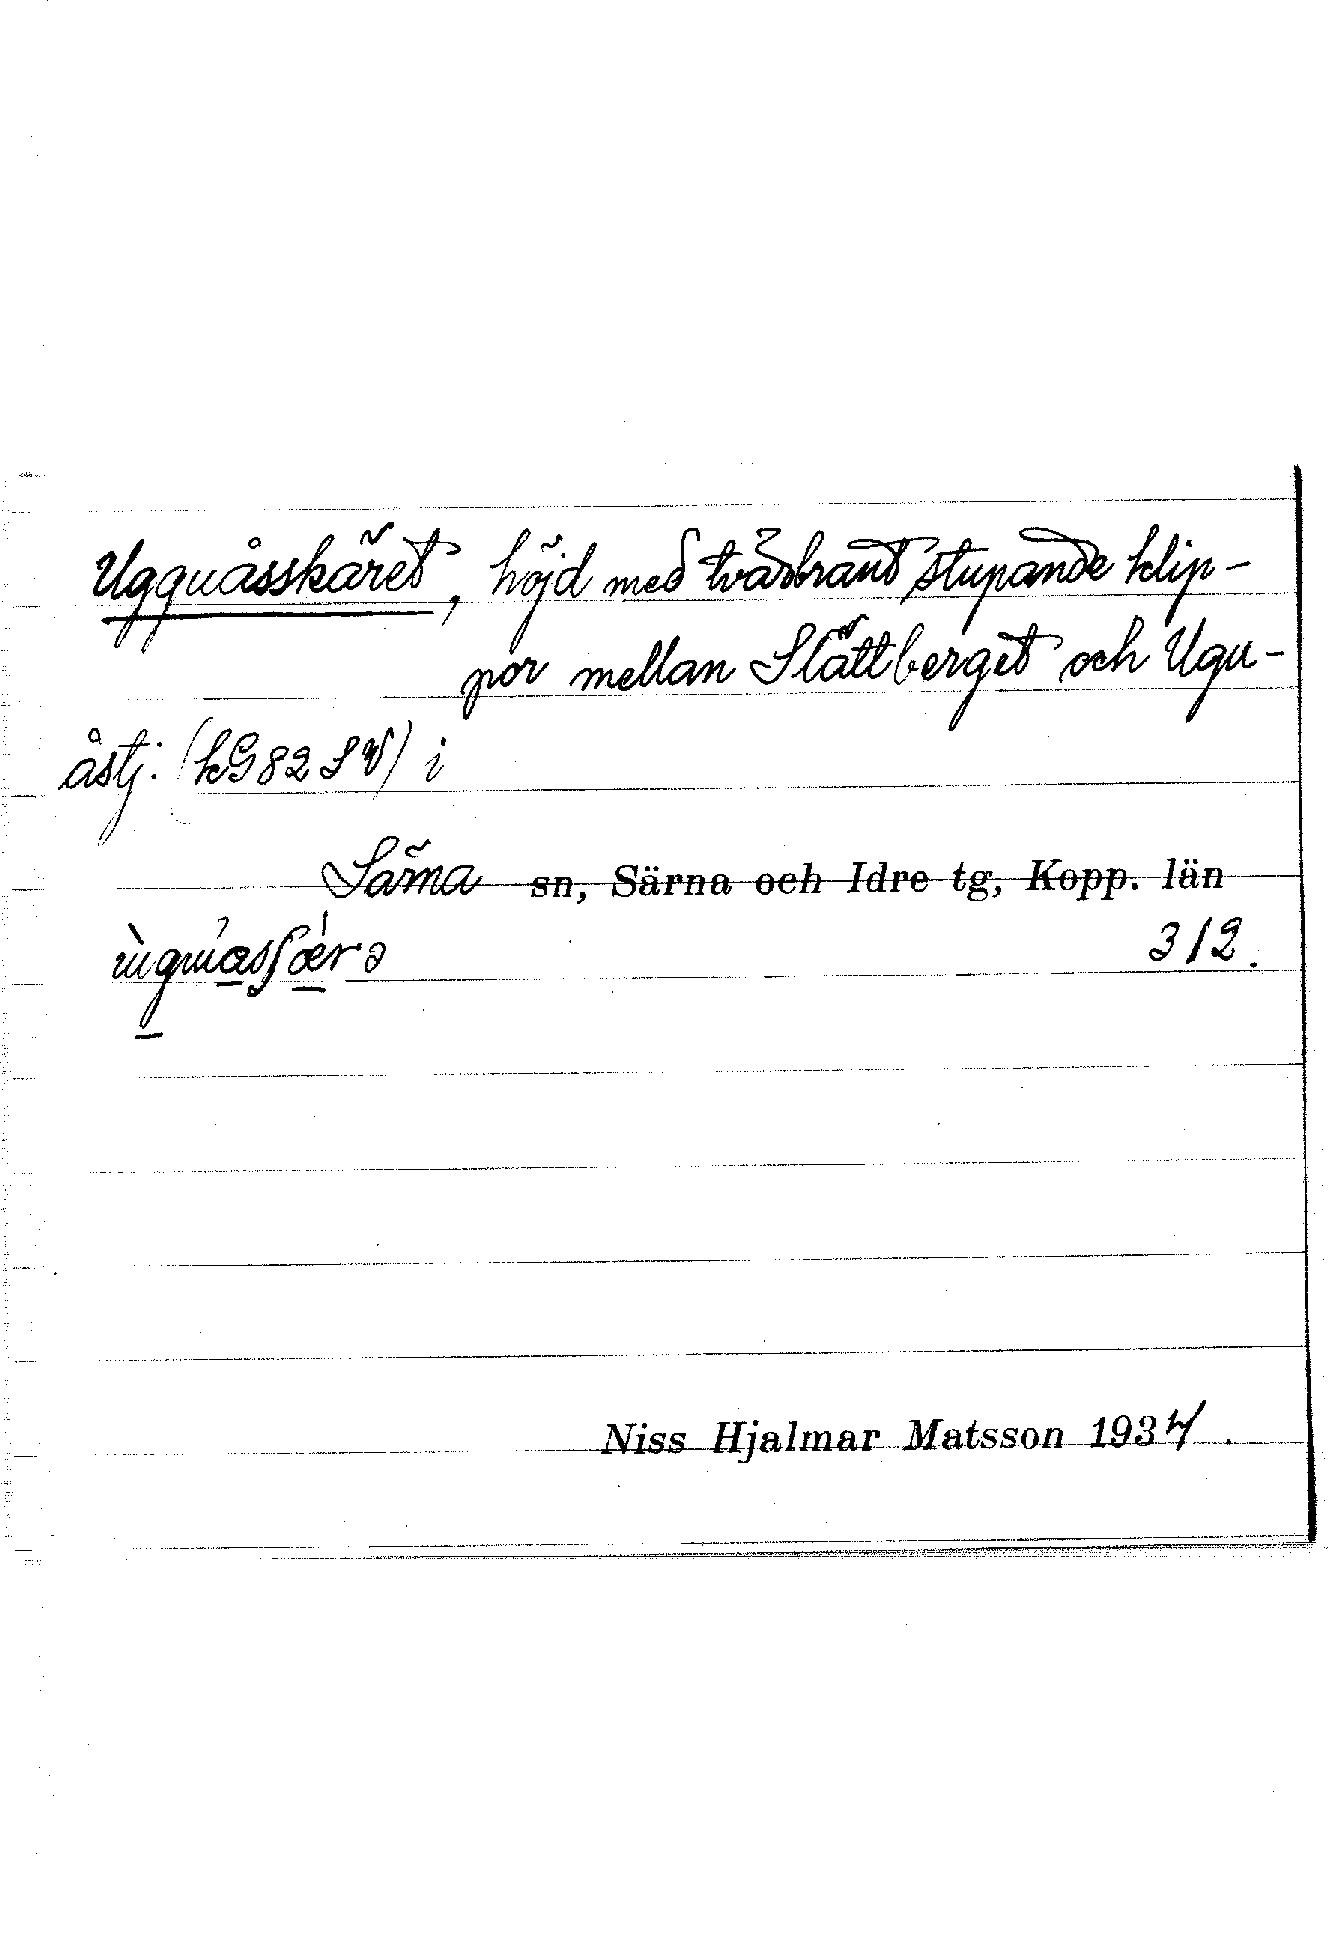 Ugguåsskäret, höjd med tvärbrant stupande klip-
por mellan Slättberget och Ugu-
åstj. (kG82 SV) i
Särna sn, Särna och Idre tg, Kopp. län
312.
Niss Hjalmar Matsson 1934.